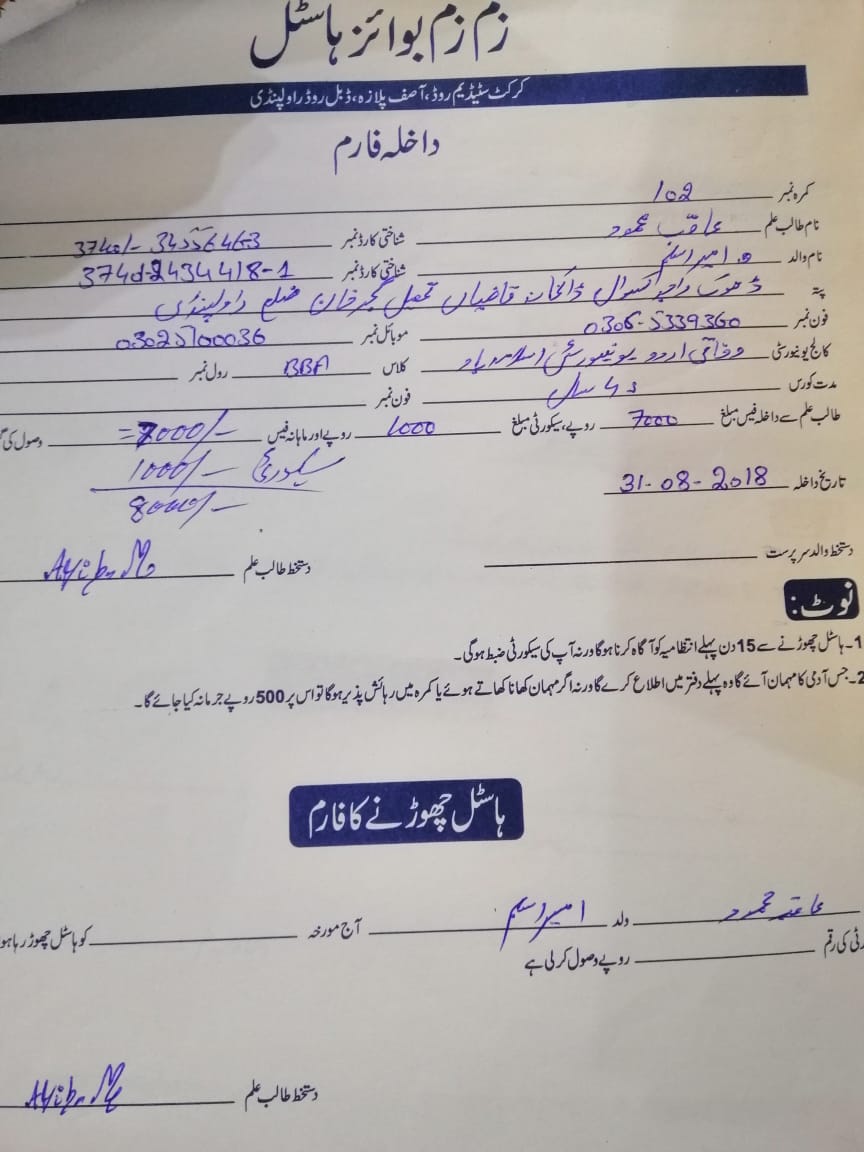 زم زم بوائز ہاسٹل
کرکٹ سٹیڈیم روڈ، آصف پلازہ، ڈبل روڈ راولپنڈی
داخلہ فارم
کمرہ نمبر 102
نام طالب علم عاقب محمود شناختی کارڈ نمبر
نام والد امیر اسلم شناختی کارڈ نمبر
پتہ ڈھوک راجہ اکسوال ڈاکخانہ قاضیاں تحصیل گجرخان ضلع راولپنڈی
فون نمبر 0306-5339360 موبائل نمبر 03025700036
کالج یونیورسٹی وفاقی اردو یونیورسٹی اسلام آباد کلاس BBA رول نمبر
مدت کورس 4 سال فون نمبر
طالب علم سے داخلہ فیس مبلغ 7000 روپے، سیکورٹی مبلغ 1000 روپے اور ماہانہ فیس =7000/- وصول کی
سیکورٹی 1000/-
8000/-
تاریخ داخلہ 31-08-2018
دستخط والد سرپرست دستخط طالب علم
نوٹ:
1۔ ہاسٹل چھوڑنے سے 15 دن پہلے انتظامیہ کو آگاہ کرنا ہوگا ورنہ آپ کی سیکورٹی ضبط ہوگی۔
2۔ جس آدمی کا مہمان آئے گا وہ پہلے دفتر میں اطلاع کرے گا ورنہ اگر مہمان کھانا کھاتے ہوئے یا کمرہ میں رہائش پذیر ہوگا تو اس پر 500 روپے جرمانہ کیا جائے گا۔
ہاسٹل چھوڑنے کا فارم
عاقب محمود ولد امیر اسلم آج مورخہ کو ہاسٹل چھوڑ رہا ہو
کی رقم روپے وصول کر لی ہے
دستخط طالب علم